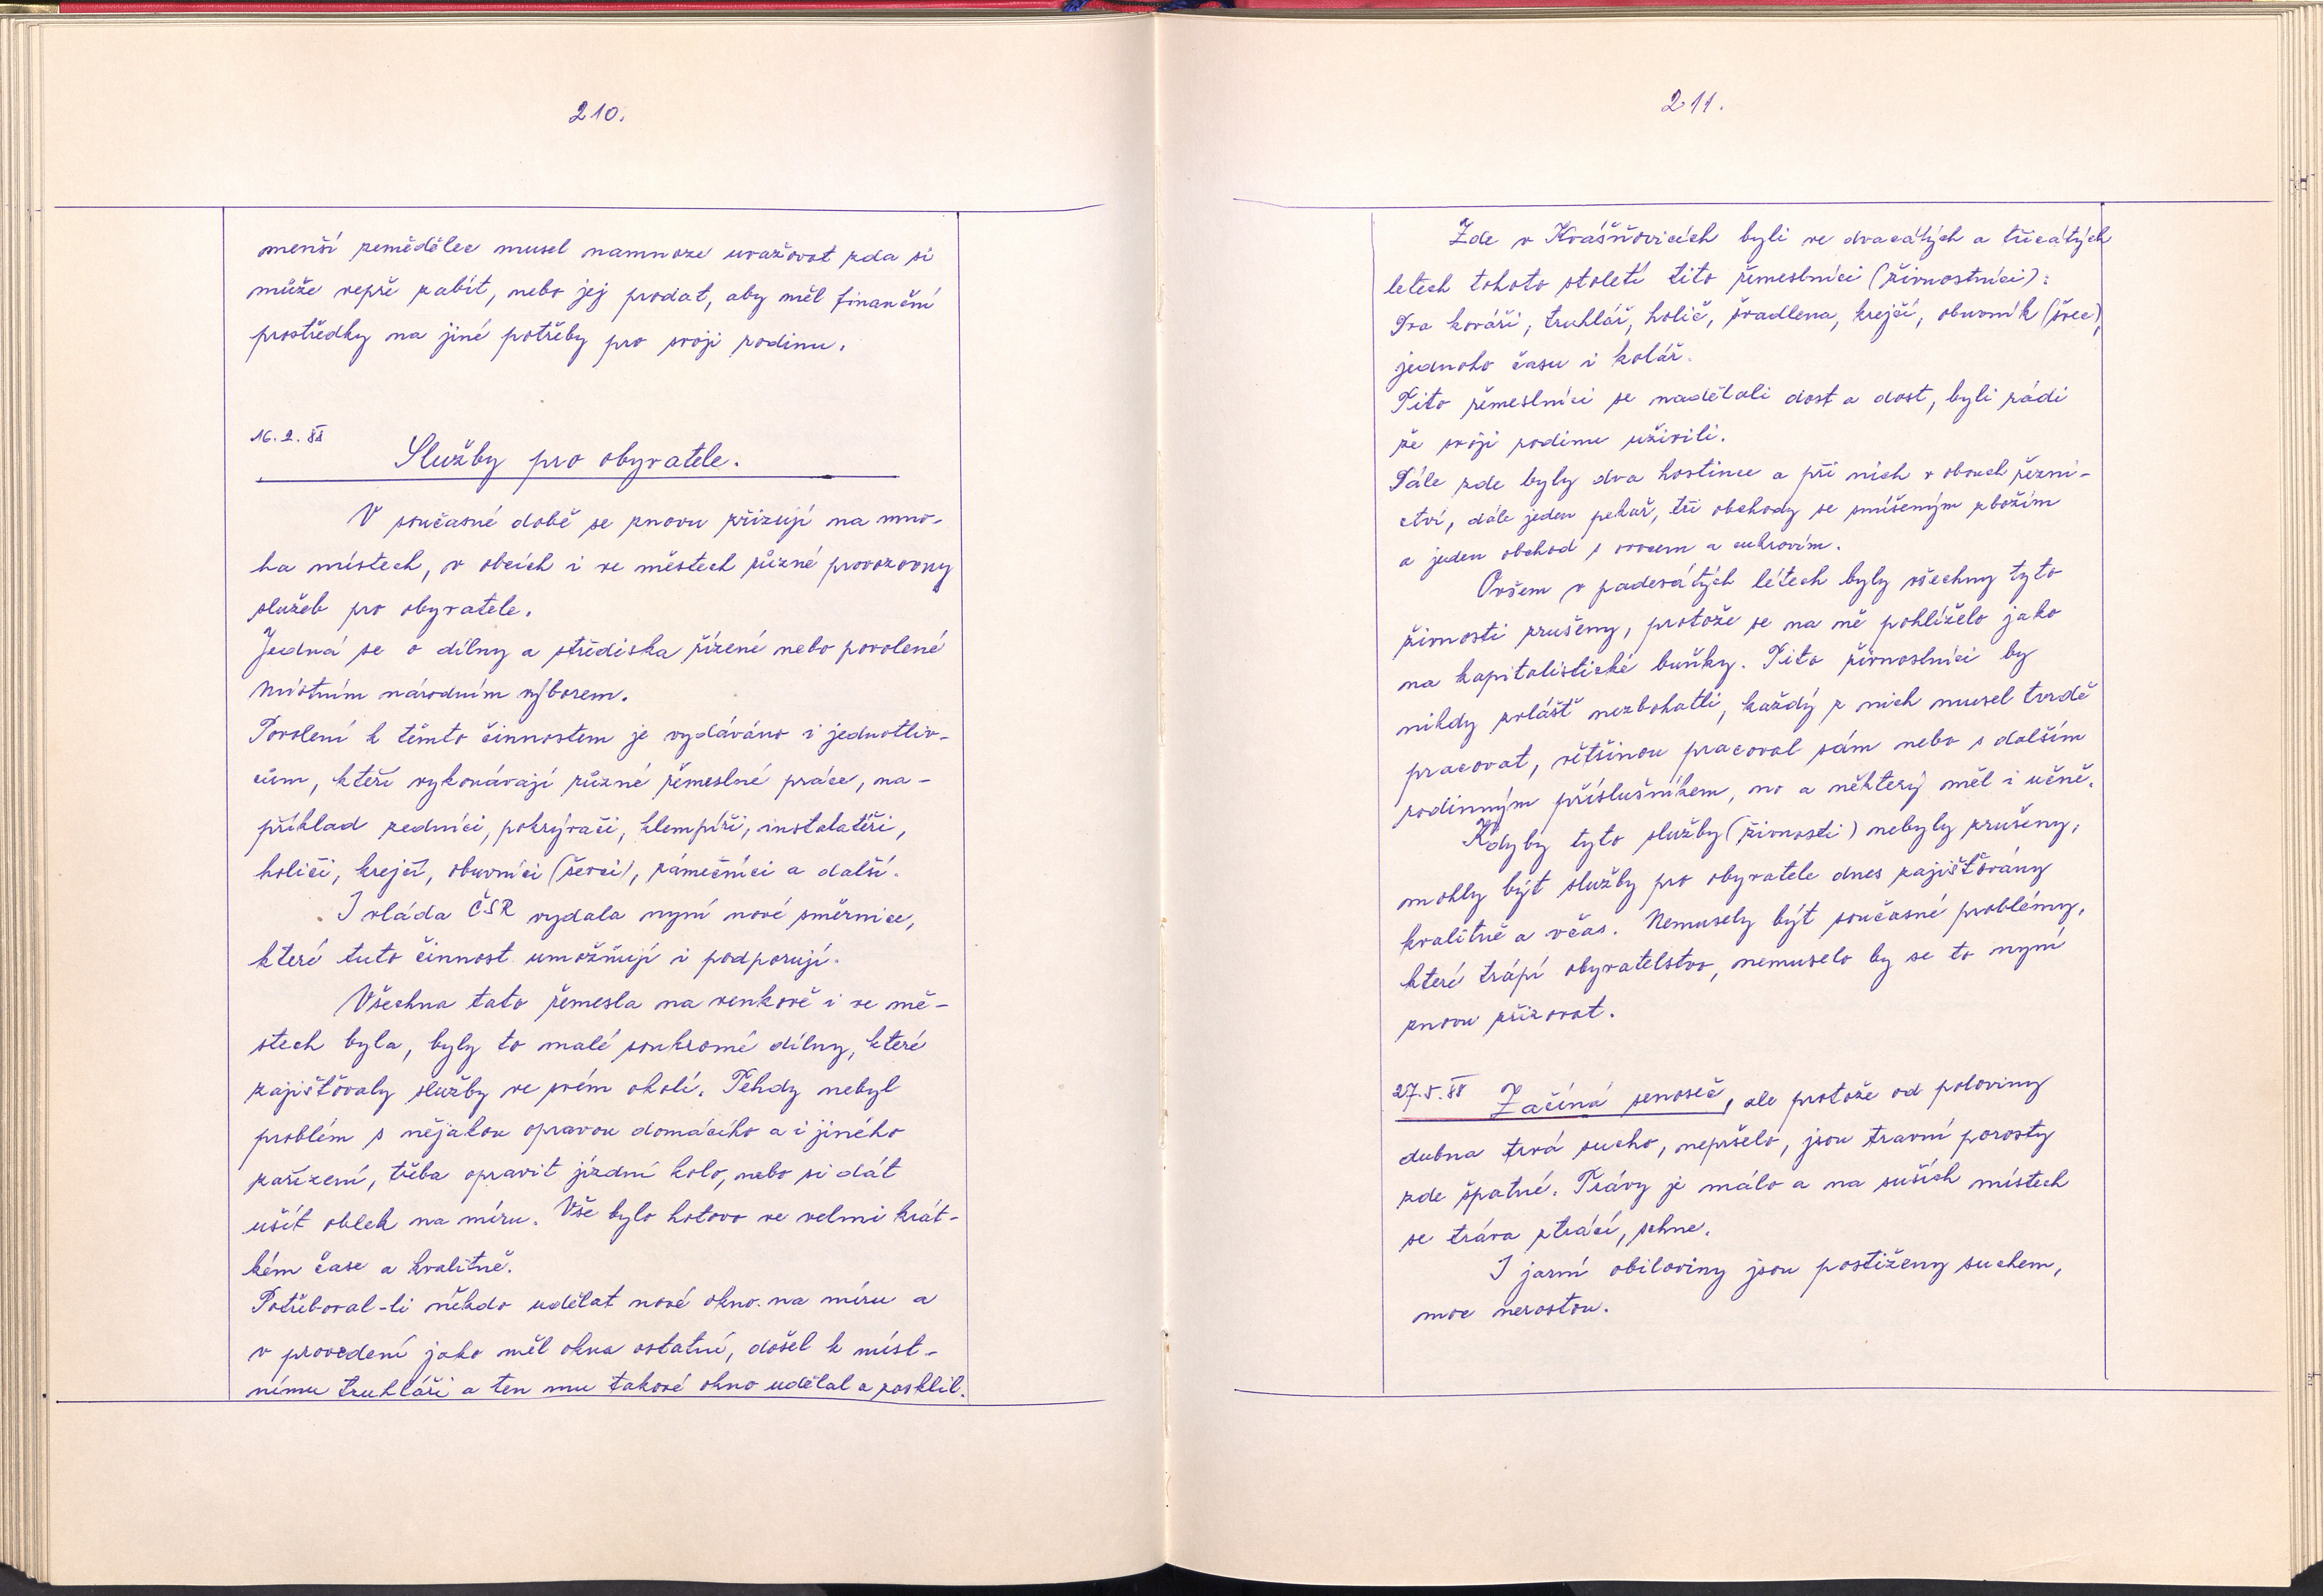 210.
menší zemědělec musel namnoze uvažovat zda si
může vepře zabít, nebo jej prodat, aby měl finanční
prostředky na jiné potřeby pro svoji rodinu.
16. 2. 88
Služby pro obyvatele.
V současné době se znovu zřizují na mno-
ha místech, v obcích i ve městech různé provozovny
služeb pro obyvatele.
Jedná se o dílny a střediska řízené nebo povolené
Místním národním výborem.
Povolení k těmto činnostem je vydáváno i jednotliv-
cům, kteří vykonávají různé řemeslné práce, na-
příklad zedníci, pokrývači, klempíři, instalatéři,
holiči, krejčí, obuvníci (ševci), zámečníci a další.
I vláda ČSR vydala nyní nové směrnice,
které tuto činnost umožňují i podporují.
Všechna tato řemesla na venkově i ve mě-
stech byla, byly to malé soukromé dílny, které
zajišťovaly služby ve svém okolí. Tehdy nebyl
problém s nějakou opravou domácího a i jiného
zařízení, třeba opravit jízdní kolo, nebo si dát
ušít oblek na míru. Vše bylo hotovo ve velmi krát-
kém čase a kvalitně.
Potřeboval-li někdo udělat nové okno na míru a
v provedení jako měl okna ostatní, došel k míst-
nímu truhláři a ten mu takové okno udělal a zasklil.
211.
Zde v Krášňovicích byli ve dvacátých a třicátých
letech tohoto století tito řemeslníci (živnostníci):
Dva kováři, truhlář, holič, švadlena, krejčí, obuvník (švec),
jednoho času i kolář.
Tito řemeslníci se nadělali dost a dost, byli rádi
že svoji rodinu uživili.
Dále zde byly dva hostince a při nich v obouch řezni-
ctví, dále jeden pekař, tři obchody se smíšeným zbožím
a jeden obchod s ovocem a cukrovím.
Ovšem v padesátých létech byly všechny tyto
živnosti zrušeny, protože se na ně pohlíželo jako
na kapitalistické buňky. Tito živnostníci by
nikdy zvlášť nezbohatli, každý z nich musel tvrdě
pracovat, většinou pracoval sám nebo s dalším
rodinným příslušníkem, no a některý měl i učně.
Kdyby tyto služby (živnosti) nebyly zrušeny,
mohly být služby pro obyvatele dnes zajišťovány
kvalitně a včas. Nemusely být současné problémy,
které trápí obyvatelstvo, nemuselo by se to nyní
znovu zřizovat.
27. 5. 88 Začíná senoseč, ale protože od poloviny
dubna trvá sucho, nepršelo, jsou travní porosty
zde špatné. Trávy je málo a na suších místech
se tráva ztrácí, schne.
I jarní obiloviny jsou postiženy suchem,
moc nerostou.